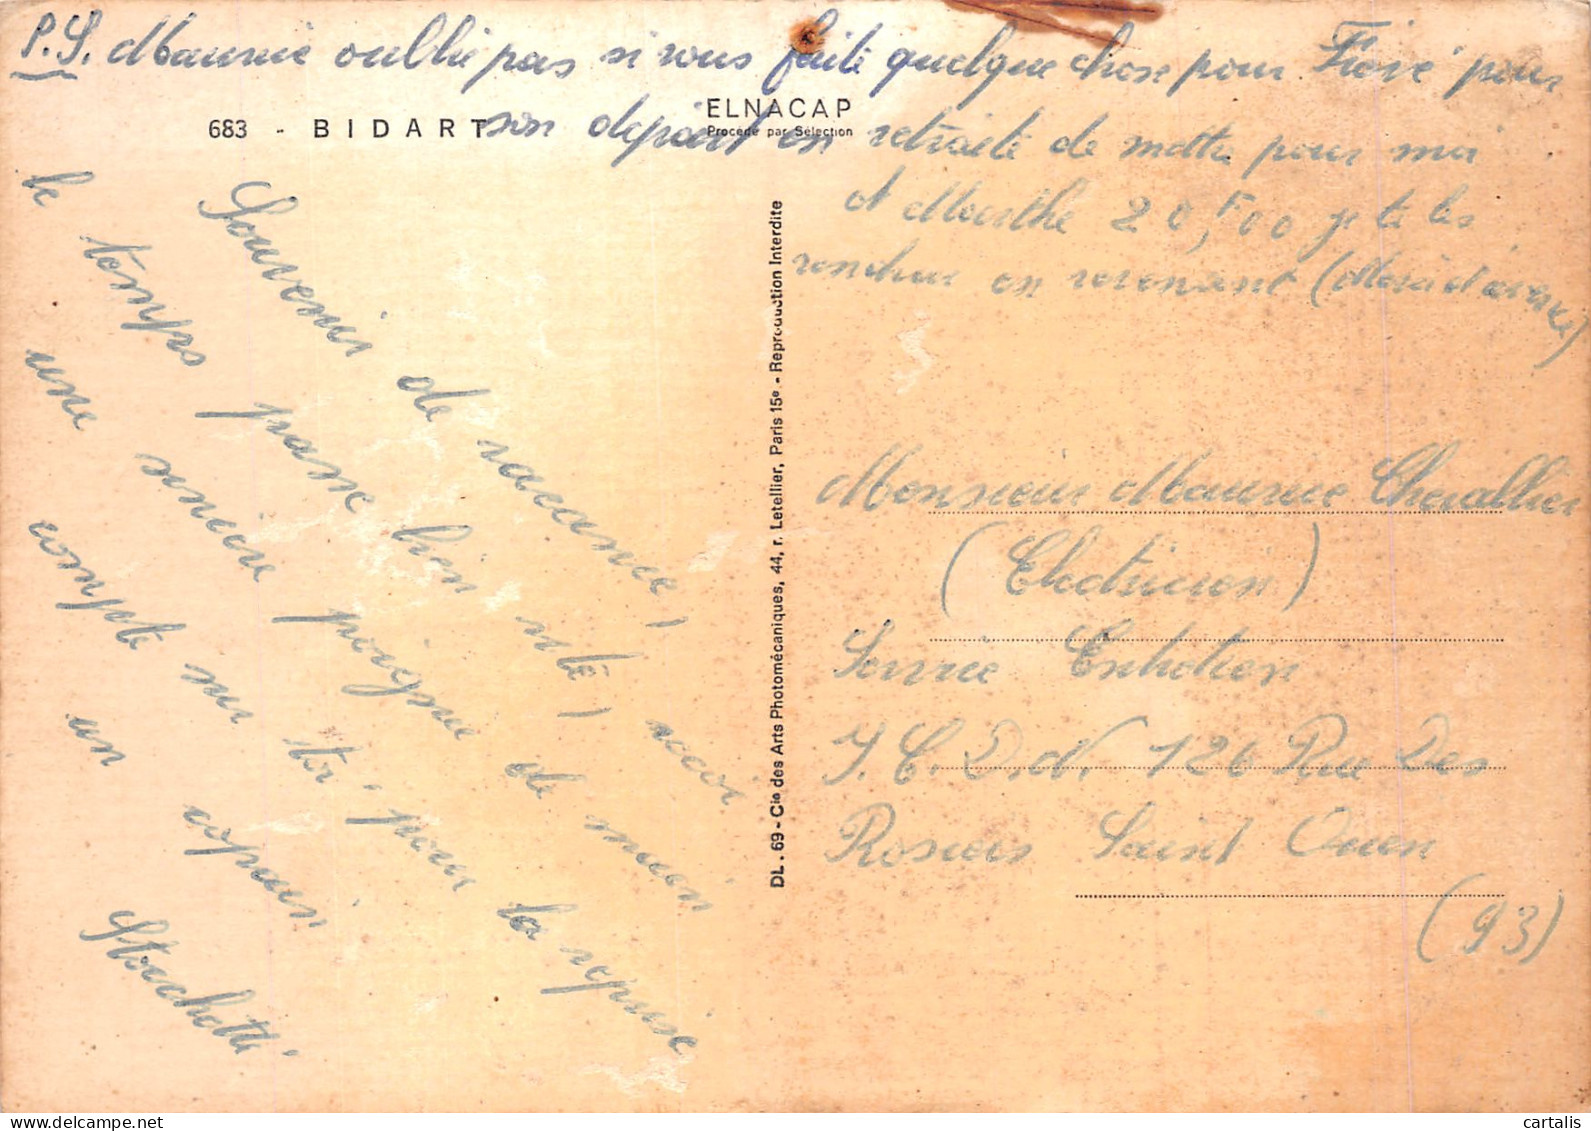 P.S. Maurice oublie pas si vous faite quelque chose pour Fiové pour
son depart en retraite de mettre pour moi
et Marthe 20,F00 je te les
rendrai en revenant (Merci d'avance)
683 - BIDART
ELNACAP
Procédé par Sélection
Souvenir de vacance,
le temps passe bien vite, recoi
une sincire poignie de main
compte sur toi pour la reprise
un copain
DL. 69 - Cie des Arts Photomécaniques, 44, r. Letellier, Paris 15e - Reproduction Interdite
Monsieur Maurice Chevallier
(Electricien)
Service Entretien
126 Rue Des
Rosiers Saint Ouen
(93)
cartalis